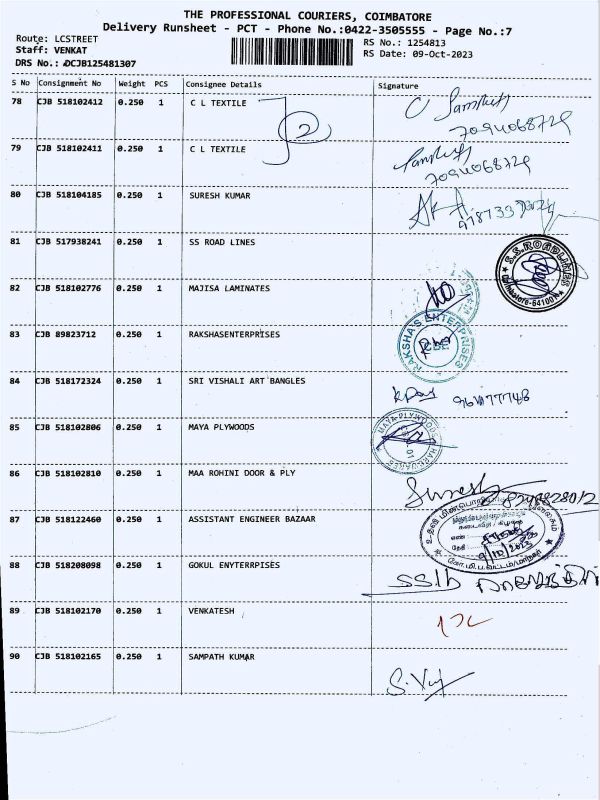 THE PROFESSIONAL COURIERS, COIMBATORE
Delivery Runsheet - PCT - Phone No.:0422-3505555 - Page No.:7
Route: LCSTREET
RS No.: 1254813
Staff: VENKAT
RS Date: 09-Oct-2023
DRS No.: DCJB125481307
S No Consignment No Weight PCS Consignee Details Signature
78 CJB 518102412 0.250 1 C L TEXTILE
7094068729
79 CJB 518102411 0.250 1 C L TEXTILE
7094068729
80 CJB 518104185 0.250 1 SURESH KUMAR
81 CJB 517938241 0.250 1 SS ROAD LINES
S.S.ROADLINES
82 CJB 518102776 0.250 1 MAJISA LAMINATES
83 CJB 89823712 0.250 1 RAKSHASENTERPRISES
RAKSHA'S ENTERPRISES
CBE
84 CJB 518172324 0.250 1 SRI VISHALI ART BANGLES
85 CJB 518102806 0.250 1 MAYA PLYWOODS
MAYA PLYWOODS HARDWARES
86 CJB 518102810 0.250 1 MAA ROHINI DOOR & PLY
Suresh
87 CJB 518122460 0.250 1 ASSISTANT ENGINEER BAZAAR
9/10/2023
88 CJB 518208098 0.250 1 GOKUL ENYTERRPISES
89 CJB 518102170 0.250 1 VENKATESH
90 CJB 518102165 0.250 1 SAMPATH KUMAR